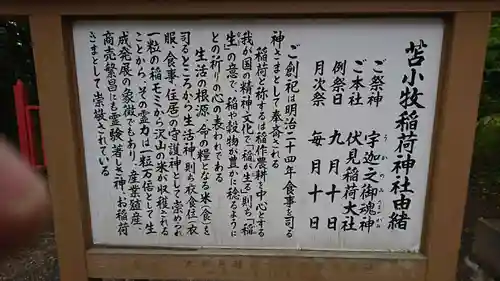 苫小牧稲荷神社由緒
ご祭神　宇迦之御魂神
うかのみたまのかみ
ご本社　伏見稲荷大社
例祭日　九月十日
月次祭　毎月十日
ご創祀は明治二十四年、食事を司る
神さまとして奉斎される
稲荷と称するは稲作農耕を中心とする
我が国の精神文化で「稲が生る」則ち「稲
生」の意で、稲や穀物が豊かに稔るように
との祈りの心の表われである
生活の根源、命の糧となる米「食」を
司るところから生活神、則ち衣食住（衣
服、食事、住居）の守護神として崇められ
一粒の稲モミから沢山の米が収穫される
ことから、その霊力は一粒万倍として生
成発展の象徴でもあり、産業殖産、
商売繁昌にも霊験著しき神「お稲荷
さま」として崇敬されている